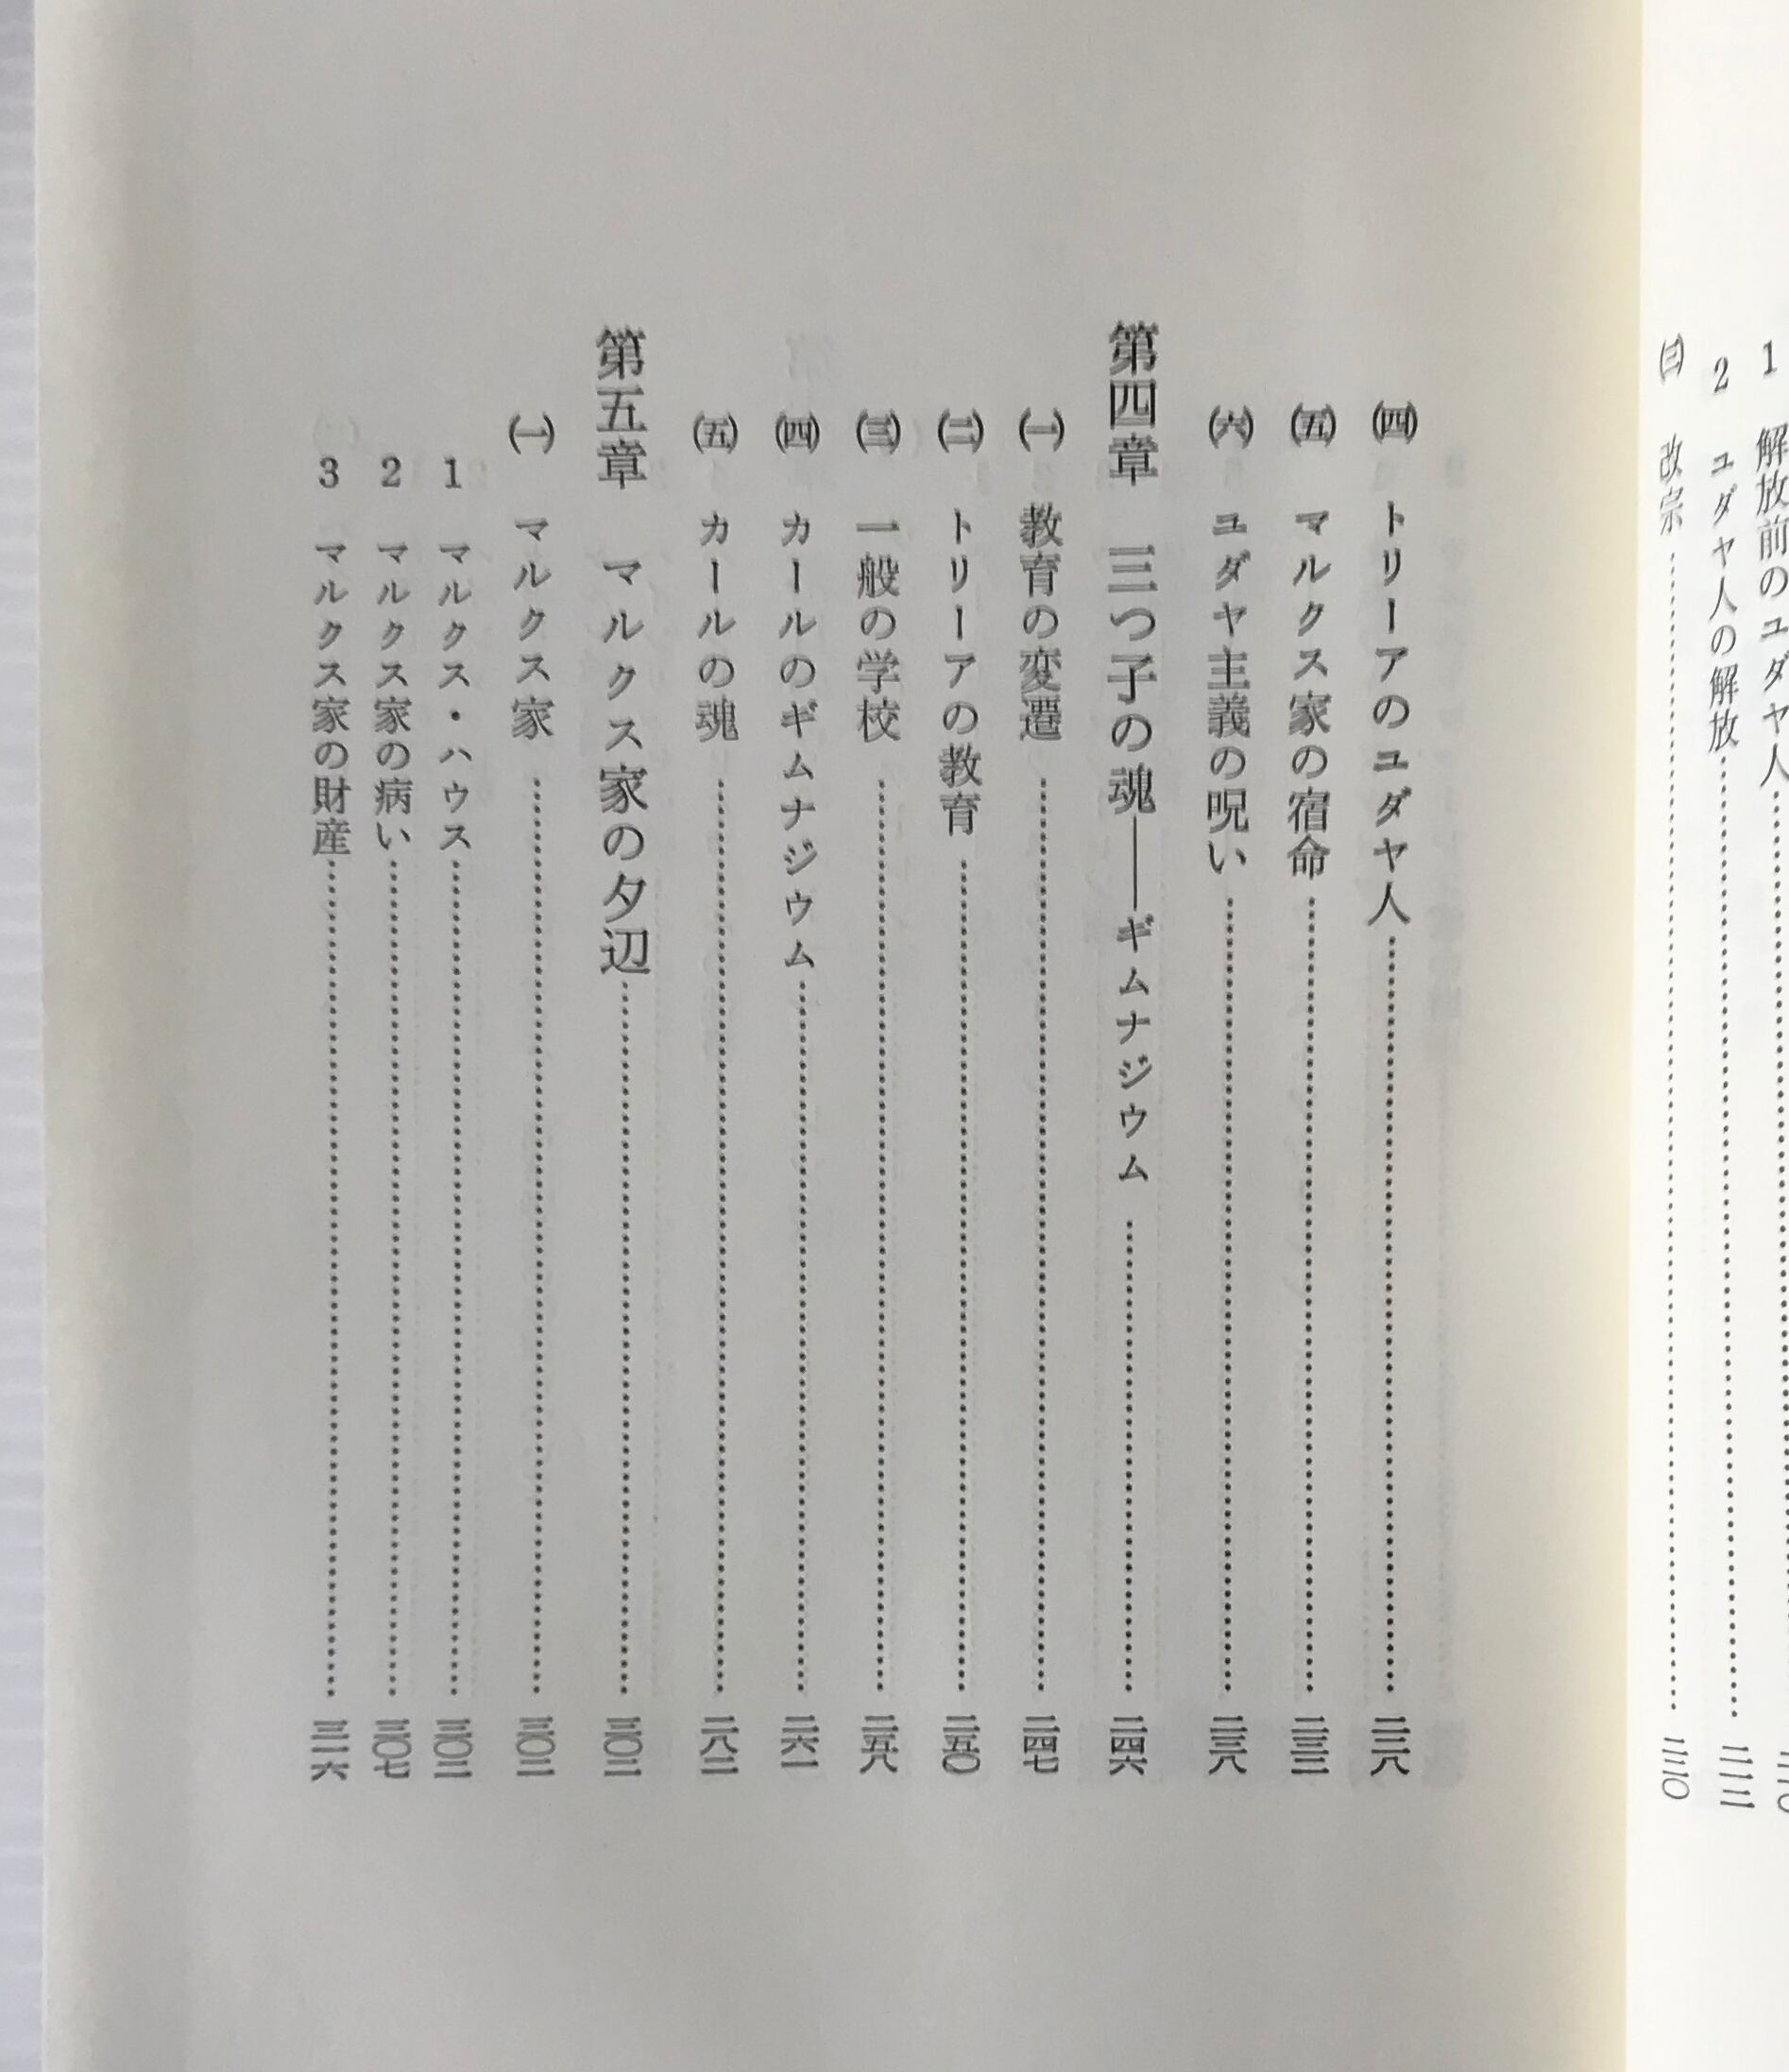 1 解放前のユダヤ人
2 ユダヤ人の解放……二一二
㈢ 改宗……二二〇
㈣ トリーアのユダヤ人……二二八
㈤ マルクス家の宿命……二三三
㈥ ユダヤ主義の呪い……二三八
第四章 三つ子の魂――ギムナジウム……二四六
㈠ 教育の変遷……二四七
㈡ トリーアの教育……二五〇
㈢ 一般の学校……二五八
㈣ カールのギムナジウム……二六一
㈤ カールの魂……二八二
第五章 マルクス家の夕辺……三〇二
㈠ マルクス家……三〇二
1 マルクス・ハウス……三〇二
2 マルクス家の病い……三〇七
3 マルクス家の財産……三一六